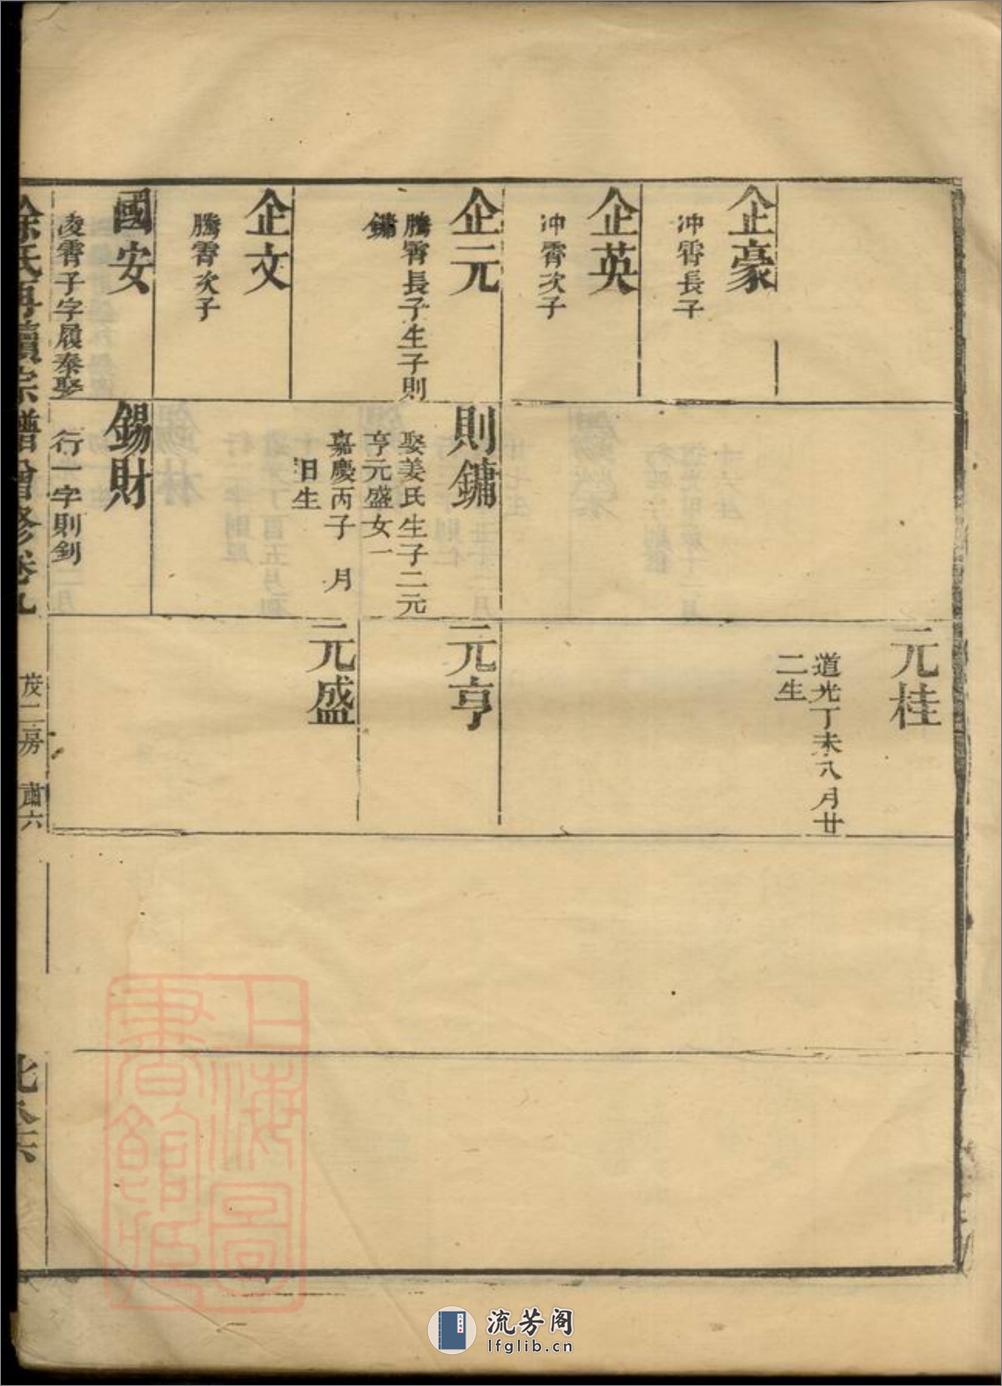 企豪
冲霄長子
企英
冲霄次子
企元
騰霄長子生子則
鏞
企文
騰霄次子
國安
凌霄子字履泰娶
則鏞
娶姜氏生子二元
亨元盛女一
嘉慶丙子　月
日生
錫財
行一字則釗
元桂
道光丁未八月廿
二生
元亨
元盛
徐氏再續宗譜曾修卷九
茂二房　肅六
上海圖
書館藏
流芳阁
lfglib.cn